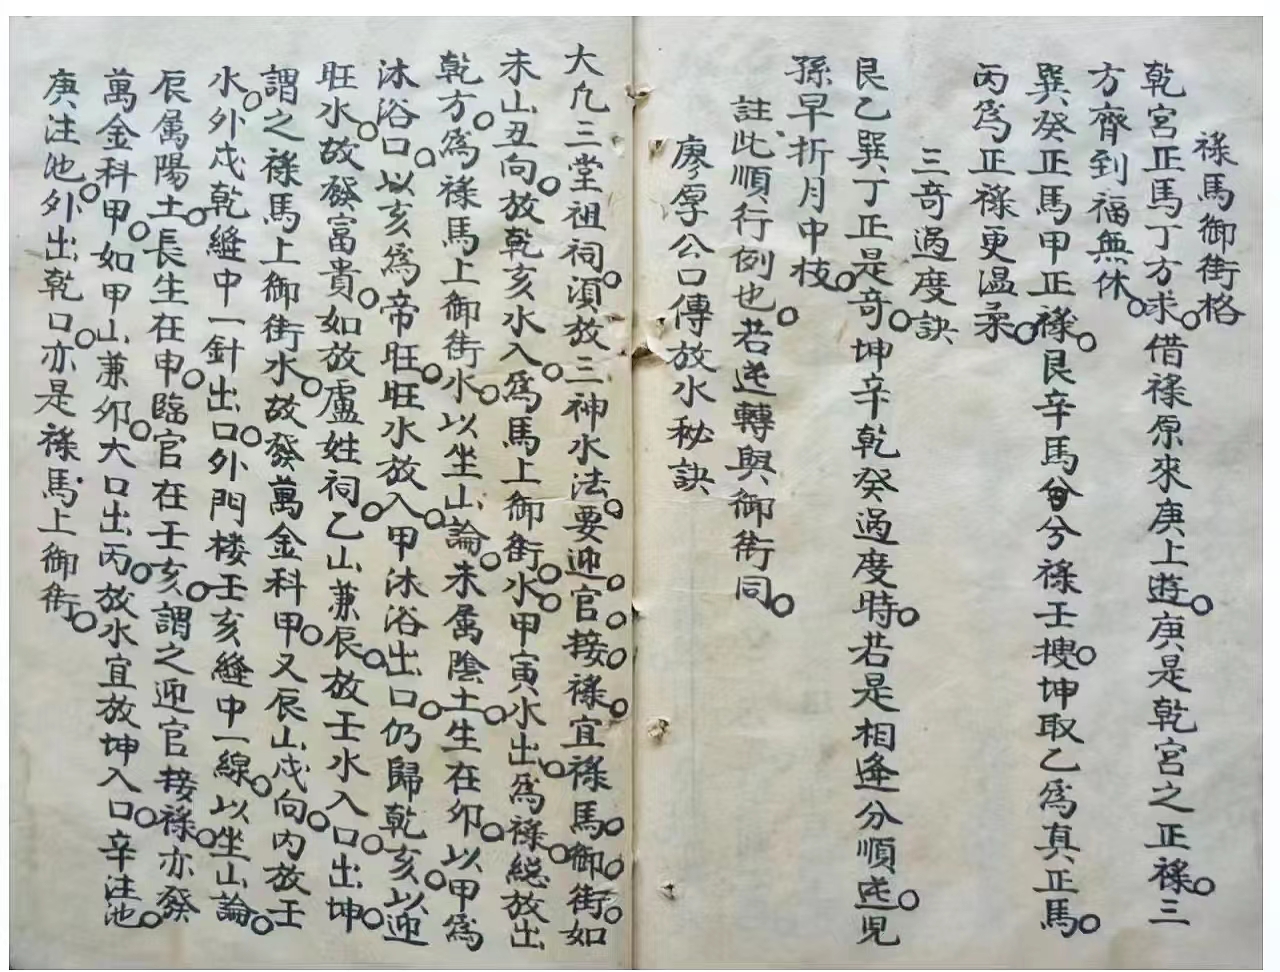 祿馬御街格
乾宮正馬丁方求。借祿原來庚上遊。庚是乾宮之正祿。三
方齊到福無休。
巽癸正馬甲正祿。艮辛馬兮分祿壬搜。坤取乙為真正馬。
丙為正祿更温柔。
三奇過度訣
艮乙巽丁正是奇。坤辛乾癸過度時。若是相逢分順逆。児
孫早折月中枝。
註此順行例也。若逆轉與御街同。
廖厚公口傳放水秘訣
大凢三堂祖祠。須放三神水法。要迎官接祿。宜祿馬御街。如
未山丑向。放乾亥水入。為馬上御街水。甲寅水出。為祿。総放出
乾方。為祿馬上御街水。以坐山論。未屬陰土。生在卯。以甲為
沐浴口。以亥為帝旺。旺水放入。甲沐浴出口。仍歸乾亥。以迎
旺水。故發富貴。如放盧姓祠。乙山兼辰。放壬水入口。出坤。
謂之祿馬上御街水。故發萬金科甲。又辰山戌向。内放壬
水。外戌乾縫中一針出口。外門楼壬亥縫中一線。以坐山論。
辰屬陽土。長生在申。臨官在壬亥。謂之迎官接祿。亦發
萬金科甲。如甲山兼卯。大口出丙。放水宜放坤入口。辛注池。
庚注池。外出乾口。亦是祿馬上御街。